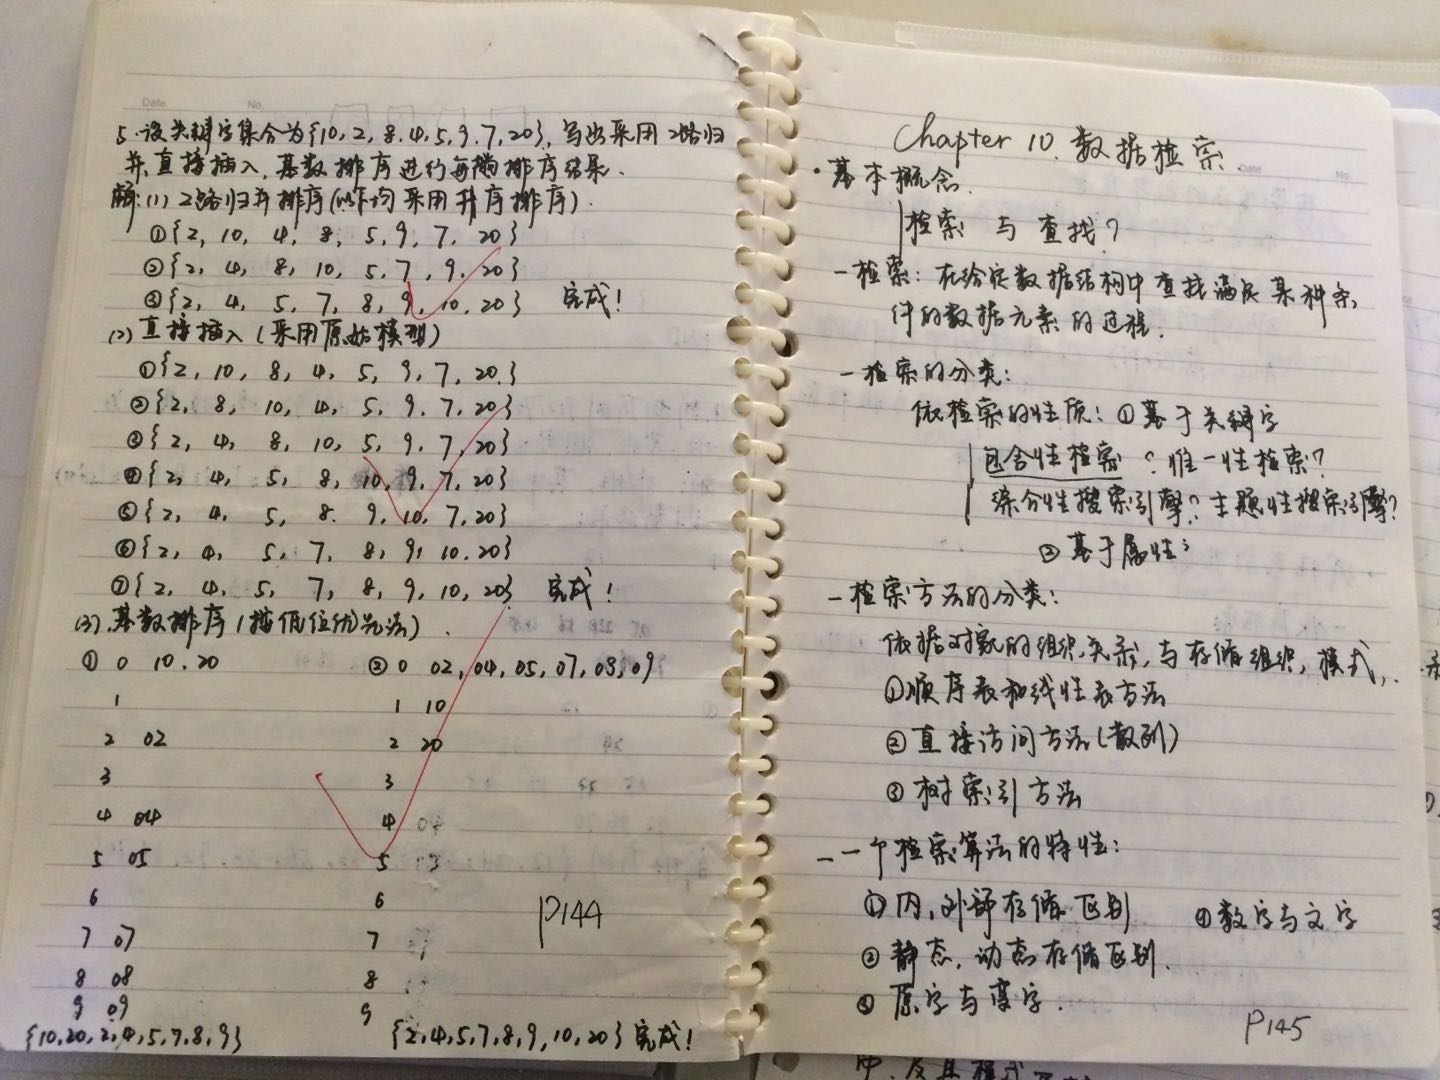 Date No.
5. 设关键字集合为{10, 2, 8, 4, 5, 9, 7, 20}, 写出采用2路归
并, 直接插入, 基数排序进行每趟排序结果.
解: (1) 2路归并排序(以下均采用升序排序).
①{2, 10, 4, 8, 5, 9, 7, 20}
②{2, 4, 8, 10, 5, 7, 9, 20}
③{2, 4, 5, 7, 8, 9, 10, 20} 完成!
(2) 直接插入(采用原始模型)
①{2, 10, 8, 4, 5, 9, 7, 20}
②{2, 8, 10, 4, 5, 9, 7, 20}
③{2, 4, 8, 10, 5, 9, 7, 20}
④{2, 4, 5, 8, 10, 9, 7, 20}
⑤{2, 4, 5, 8, 9, 10, 7, 20}
⑥{2, 4, 5, 7, 8, 9, 10, 20}
⑦{2, 4, 5, 7, 8, 9, 10, 20} 完成!
(3) 基数排序(按低位优先法).
① 0 10, 20 ② 0 02, 04, 05, 07, 08, 09
1 1 10
2 02 2 20
3 3
4 04 4
5 05 5
6 6
7 07 7
8 08 8
9 09 9
{10, 20, 2, 4, 5, 7, 8, 9} {2, 4, 5, 7, 8, 9, 10, 20} 完成!
P144
Chapter 10. 数据检索
Date No.
·基本概念.
检索 与 查找?
-检索: 在给定数据结构中查找满足某种条
件的数据元素的过程.
-检索的分类:
依检索的性质: ①基于关键字
包含性检索? 惟一性检索?
综合性搜索引擎? 主题性搜索引擎?
②基于属性:
-检索方法的分类:
依据对象的组织关系, 与存储组织, 模式,
①顺序表和线性表方法
②直接访问方法(散列)
③树索引方法
-一个检索算法的特性:
①内, 外部存储区别 ④数字与文字
②静态, 动态存储区别.
③原字与变字.
P145